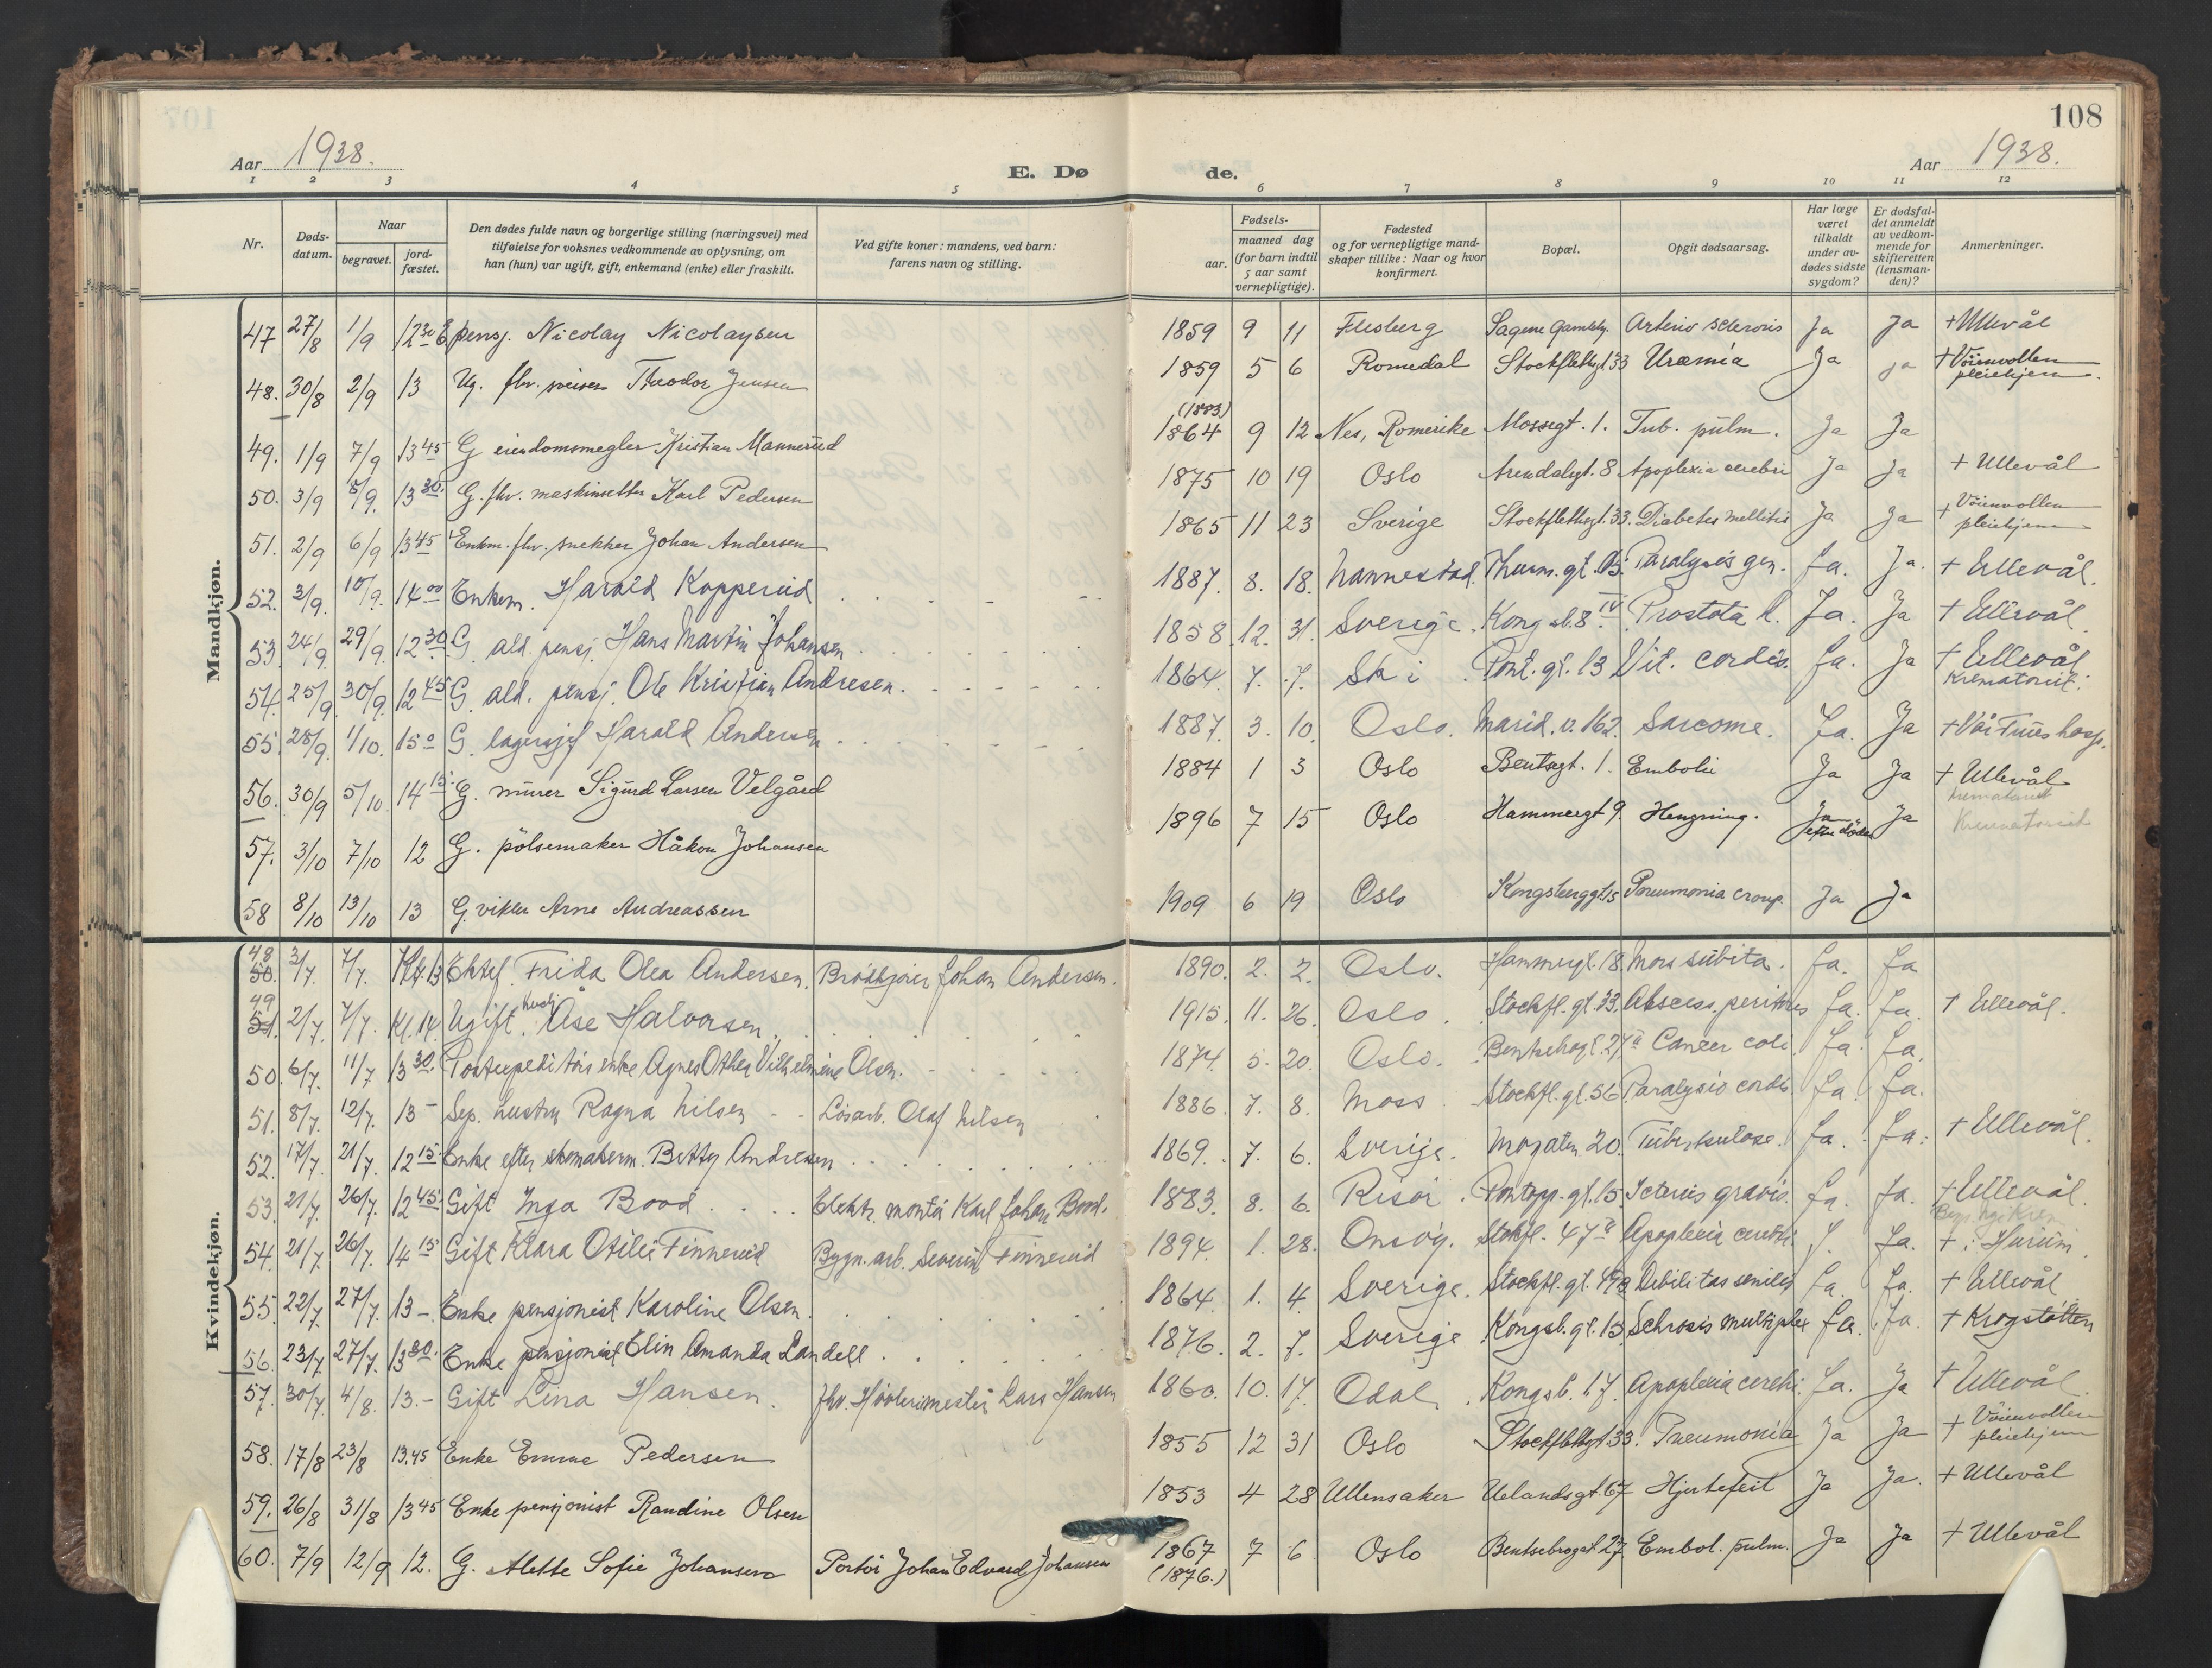 108
Aar 1938.
E. Dø de.
Aar 1938.
1 2 3 4 5 6 7 8 9 10 11 12
Nr.
Døds-datum.
Naar
begravet.
jord-fæstet.
Den dødes fulde navn og borgerlige stilling (næringsvei) med
tilføielse for voksnes vedkommende av oplysning, om
han (hun) var ugift, gift, enkemand (enke) eller fraskilt.
Ved gifte koner: mandens, ved barn:
farens navn og stilling.
Fødsels-
aar.
maaned dag
(for barn indtil
5 aar samt
vernepligtige).
Fødested
og for vernepligtige mand-
skaper tillike: Naar og hvor
konfirmert.
Bopæl.
Opgit dødsaarsag.
Har læge
været
tilkaldt
under av-
dødes sidste
sygdom?
Er dødsfal-
det anmeldt
av vedkom-
mende for
skifteretten
(lensman-
den)?
Anmerkninger.
Mandkjøn.
47 27/8 1/9 12 30 pensj. Nicolay Nicolaysen 1859 9 11 Flesberg Sagene Gamleh. Arterio sclerosis Ja Ja + Ullevål
48. 30/8 2/9 13 Ug. fhv. Theodor Jensen 1859 5 6 Romedal Stockflethsgt 33 Uræmia Ja ja + Vöienvollen pleiehjem.
49. 1/9 7/9 13 45 G eiendomsmegler Kristian Mannerud (1883) 1864 9 12 Nes, Romerike Mossegt. 1. Tub. pulm. Ja Ja
50. 3/9 8/9. 13 30. G. fhv. maskinsetter Karl Pedersen 1875 10 19 Oslo Arendalsgt. 8 Apoplexia cerebri Ja Ja + Ullevål
51. 2/9 6/9 13 45 Enkm. fhv. snekker Johan Andersen 1865 11 23 Sverige Stockflethsgt. 33. Diabetes mellitis Ja Ja + Vöienvollen pleiehjem
52. 3/9. 10/9. 14 00 Enkem. Harald Kopperud 1887. 8. 18. Nannestad. Thurm. gt. Paralysis gen. Ja. Ja. + Ullevål.
53. 24/9. 29/9. 12 30. G. ald. pensj. Hans Martin Johansen 1858. 12. 31. Sverige. Kongsb. 8 IV. Prostata h. Ja. Ja + Ullevål.
54. 25/9. 30/9. 12 45 G. ald. pensj. Ole Kristian Andresen. 1864. 7. 7. Ski. Pont. gt. 13 Vit. cordis. Ja. Ja + Ullevål Krematoriet.
55 28/9. 1/10. 15 0 G. lagersjef Harald Andersen 1887. 3. 10. Oslo. Marid. v. 162. Sarcome. Ja. Ja + Vår Frues hosp.
56. 30/9 5/10 14 15. G. murer Sigurd Larsen Velgård 1884 1 3 Oslo Bentsegt. 1. Emboli Ja Ja + Ullevål Krematoriet
57. 3/10 7/10 12 G. pölsemaker Håkon Johansen 1896 7 15 Oslo Hammergt 9. Hengning. Ja efter döden Ja Krematoriet
58 8/10 13/10 13 G. vikler Arne Andreassen 1909 6 19 Oslo Kongsberggt 15 Pneumonia croup. Ja Ja
Kvindekjøn.
48 50. 3/7. 7/7. Kl. 13 Ektef. Frida Olea Andersen. Brödkjörer Johan Andersen. 1890. 2. 2. Oslo. Hammergt. 18. Mors subita. Ja. Ja
49 51. 2/7. 7/7. Kl. 14. Ugift Åse Halvorsen. 1915. 11. 26. Oslo. Stockfl. gt. 33. Abscess. Ja. Ja. + Ullevål.
50. 6/7. 11/7 13 30. Postexpeditörs enke Agnes Othea Vilhelmine Olsen. 1874. 5. 20. Oslo. Bentsebrogt. 27 a Cancer coli. Ja. Ja.
51. 8/7. 12/7. 13 - Sep. hustru Ragna Nilsen - - Lösarb. Olaf Nilsen 1886. 7. 8. Moss. Stockfl. gt. 56. Paralysis cordis. Ja. Ja.
52. 17/7. 21/7. 12 15. Enke efter skomakerm. Betty Andresen 1869. 7. 6. Sverige. Mogaten 20. Tuberkulose. Ja. Ja. + Ullevål.
53. 21/7. 26/7. 12 45. Gift Inga Bood. Elektr. montör Karl Johan Bood. 1883. 8. 6. Risör. Pontopp. gt. 15. Icterus gravis. Ja. Ja. + Ullevål.
54. 21/7. 26/7. 14 15 Gift Klara Otilie Finnerud Bygn. arb. Severin Finnerud 1894. 1. 28. Onsöy. Stokfl. 47 a Apoplexia cerebri. J. Ja. + i Hurum.
55. 22/7. 27/7. 13 - Enke pensjonist Karoline Olsen. 1864. 1. 4. Sverige. Stockfl. gt. Debilitas senilis Ja. Ja. + Ullevål
56. 23/7. 27/7. 13 30. Enke pensjonist Elin Amanda Landell 1876. 2. 7. Sverige Kongsb. gt. 15. Schrosis multiplex Ja. Ja. + Krogstötten
57. 30/7. 4/8. 13. - Gift Lina Hansen. fhv. Hövlerimester Lars Hansen 1860. 10. 17. Odal. Kongsb. 17. Apoplexia cerebri. Ja. Ja + Ullevål.
58. 17/8 23/8 13.45 Enke Emma Pedersen 1855 12 31 Oslo Stockflethsgt 33. Pneumonia Ja Ja + Vöienvollen pleiehjem
59. 26/8 31/8 13 45 Enke pensjonist Randine Olsen 1853 4 28 Ullensaker Uelandsgt 67 Hjertefeil Ja Ja. + Ullevål
60. 7/9 12/9 12. G. Alette Sofie Johansen Portör Johan Edvard Johansen 1867 (1876.) 7 6 Oslo Bentsebrogt. 27 Embol. pulm. Ja Ja + Ullevål